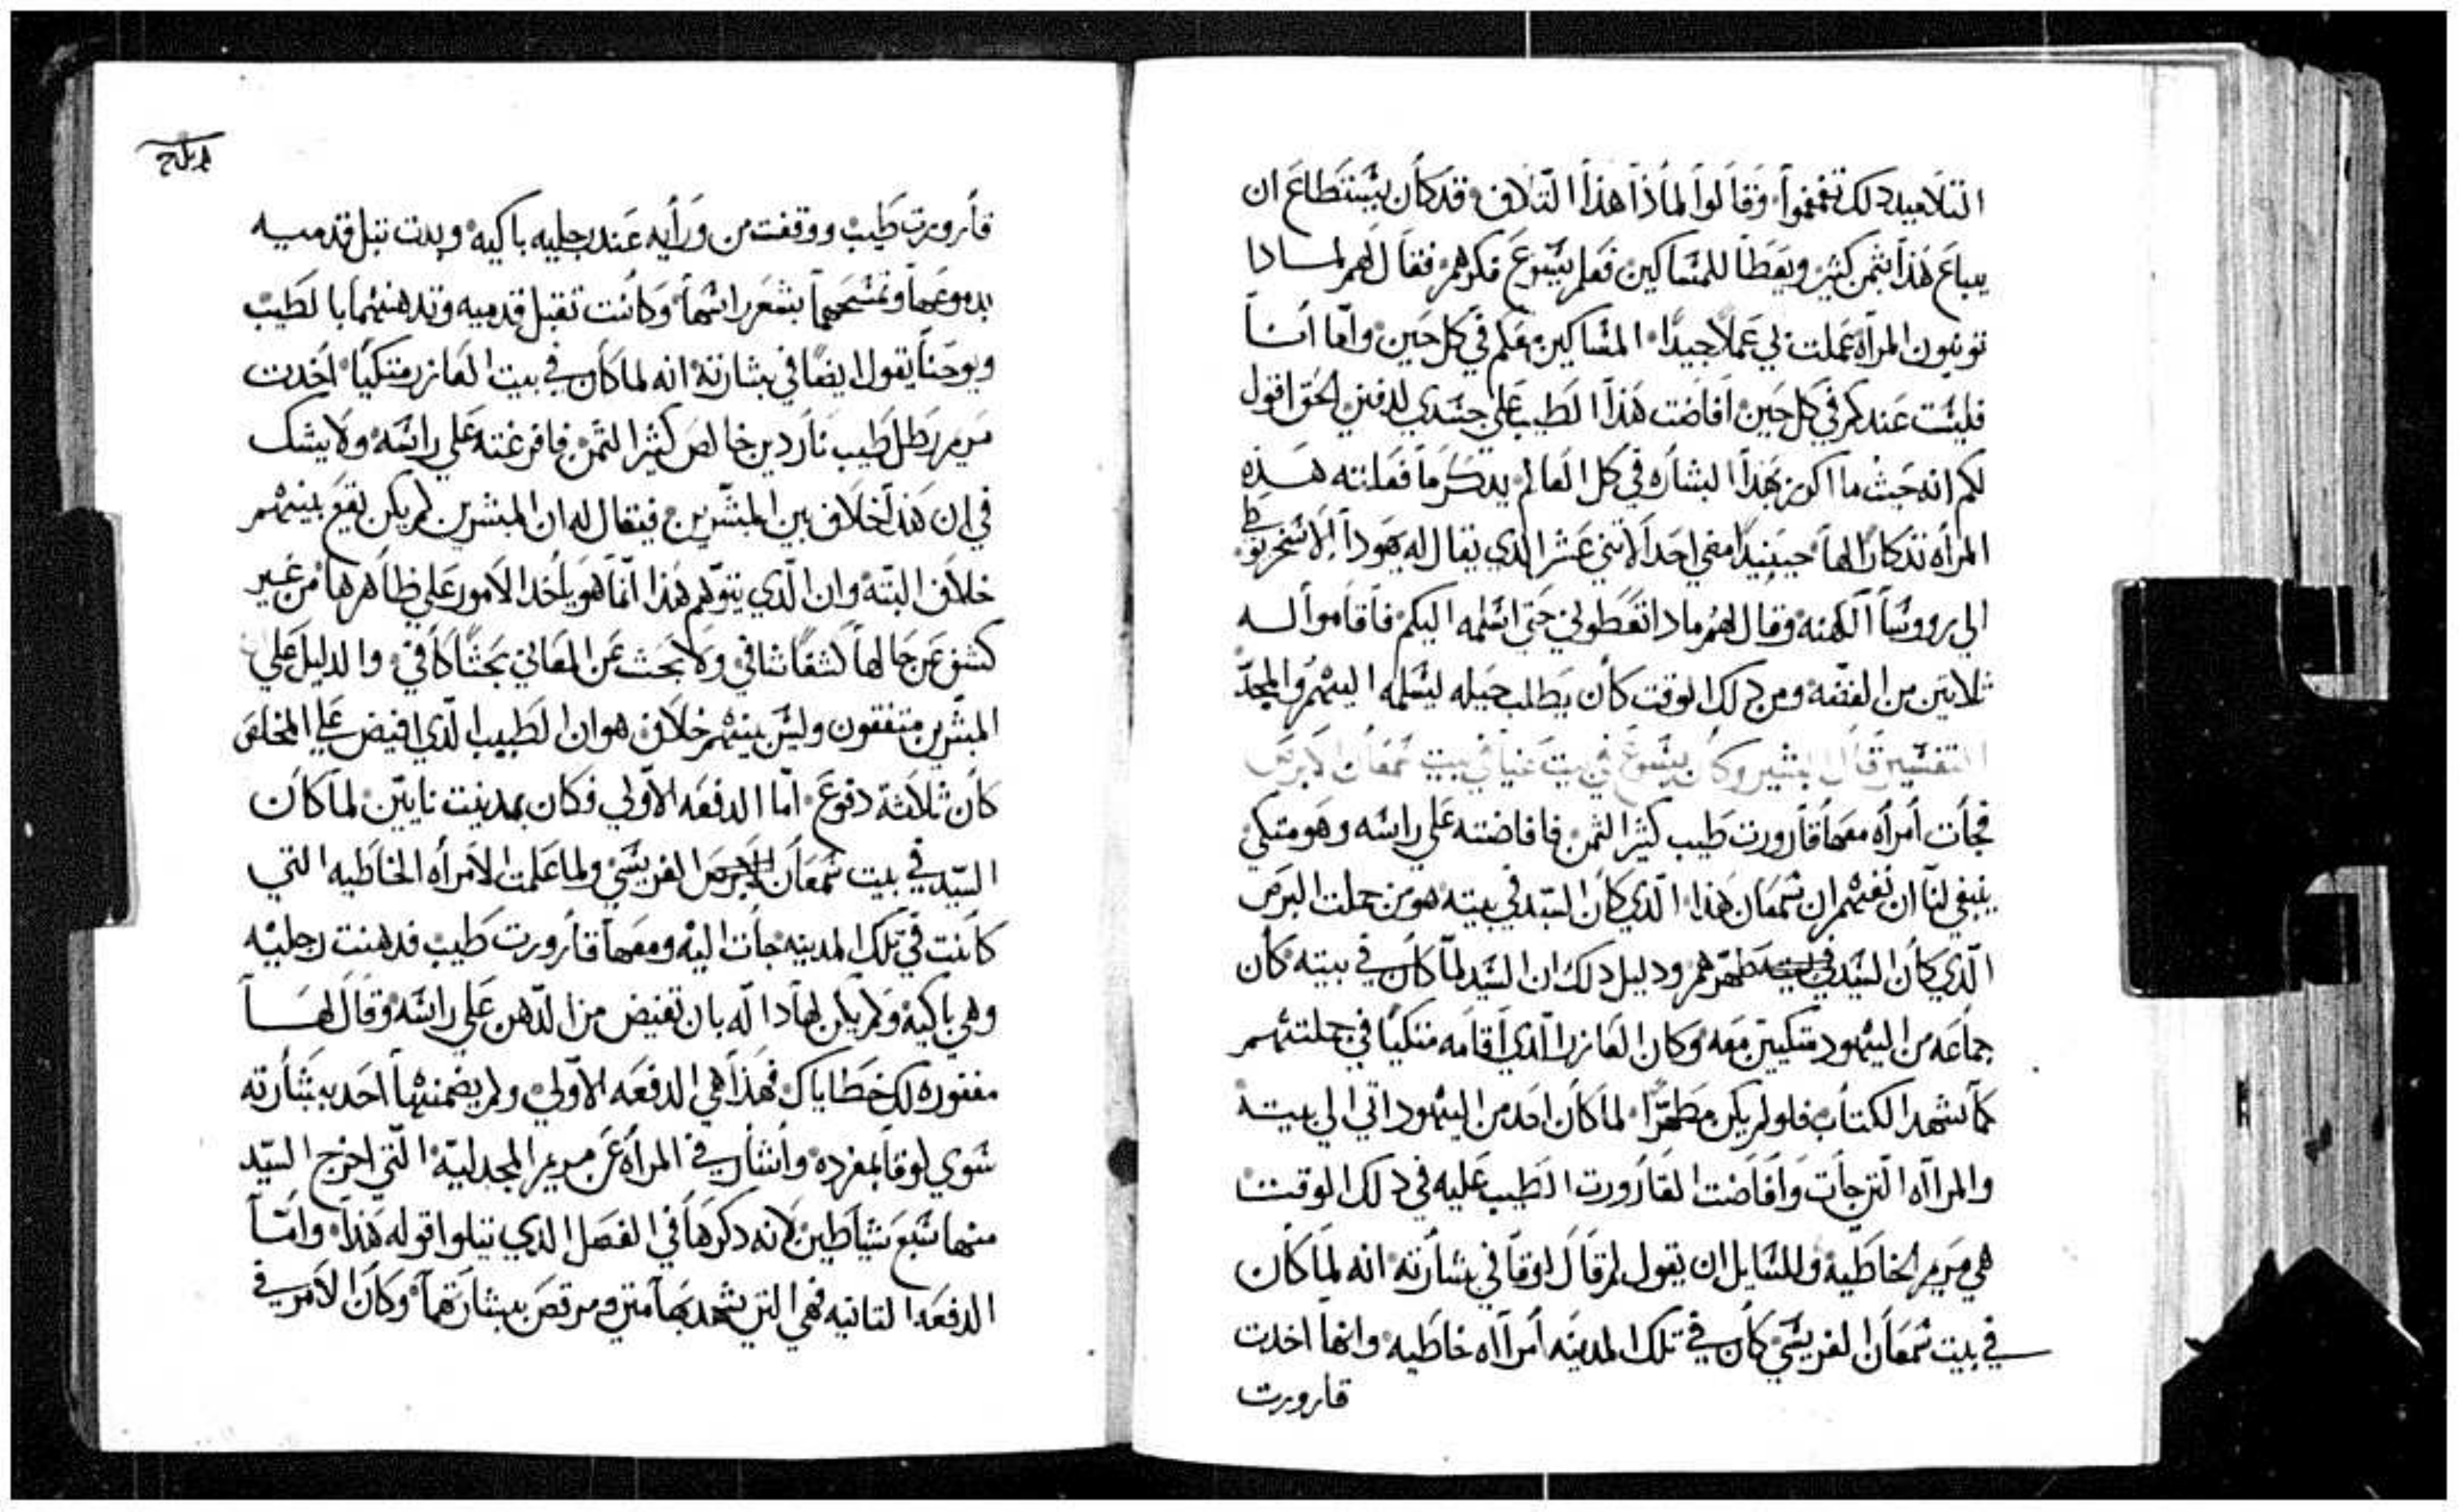 التلاميد دلك تقمقموا وقالوا لماذا هذا التلاف قد كان يستطاع ان
يباع هذا بثمن كثير ويعطا للمساكين فعلم يسوع فكرهم فقال لهم لمادا
تونبون المرآه عملت بي عملا جيدا المساكين معكم في كل حين واما انا
فليست عندكم في كل حين افاضت هذا الطيب على جسدي لدفني الحق اقول
لكم انه حيث ما اكرز بهذا البشاره في كل العالم يدكر ما فعلته هذه
المرأه تذكارا لها حينيدا مضي احد الاتني عشر الدي يقال له يهودا الاسخريوطي
الي رووسا الكهنه وقال لهم مادا تعطوني حتى اسلمه اليكم فاقاموا له
ثلاتين من الفضه ومن دلك الوقت كان يطلب حيله ليسلمه اليهم والمجد
التفسير قال البشير وكان يسوع في بيت عنيا في بيت سمعان الابرص
فجأت أمرأه معها قارورت طيب كثير الثمن فافاضته على راسه وهو متكي
ينبغي لنا ان نفهم ان سمعان هذا الذي كان السيد في بيته هو من جملت البرص
الذي كان السيد في بيته طهرهم ودليل دلك ان السيد لما كان في بيته كان
جماعه من اليهود متكيين معه وكان العازر الذي اقامه متكيا في جملتهم
كما يشهد الكتاب فلو لم يكن مطهرا لما كان احد من اليهود اتي الي بيته
والمراآه التي جأت وافاضت القارورت الطيب عليه في دلك الوقت
هي مريم الخاطيه وللسايل ان يقول لم قال لوقا في بشارته انه لما كان
في بيت سمعان الفريسي كان في تلك المدينه أمراآه خاطيه وانها اخدت
قارورت
قأرورت طيب ووقفت من ورأيه عند رجليه باكيه وبدت تبل قدميه
بدموعها وتمسحهما بشعر راسها وكانت تقبل قدميه وتدهنهما بالطيب
ويوحنا يقول ايضا في بشارته انه لما كان في بيت العازر متكيا اخدت
مريم رطل طيب ناردين خالص كثير الثمن فافرغته على راسه ولا يشك
في ان هذا خلاف بين المبشرين فيقال له ان المبشرين لم يكن يقع بينهم
خلاف البته وان الذي يتوهم هذا انما هو ياخد الامور على ظاهرها من غير
كشف عن حالها كشفا شافي ولا بحث عن المعاني بحثا كافي والدليل علي
المبشرين متفقون وليس بينهم خلاف هو ان الطيب الذي افيض على المخلص
كان ثلاثة دفوع اما الدفعه الاولي فكان بمدينت نايين لما كان
السيد في بيت سمعان الابرص الفريسي ولما علمت الامرأه الخاطيه التي
كانت في تلك المدينه جأت اليه ومعها قارورت طيب فدهنت رجليه
وهي باكيه ولم يكن لها داله بان تفيض من الدهن على راسه وقال لها
مغفوره لك خطاياك فهذا هي الدفعه الاولي ولم يضمنها احد ببشارته
سوي لوقا بمفرده واشار في المرأه عن مريم المجدليه التي اخرج السيد
منها سبع شياطين لانه دكرها في الفصل الدي يتلوا قوله هذا واما
الدفعه التانيه فهي التي يشهد بها متي ومرقص ببشارتهما وكان الامر في